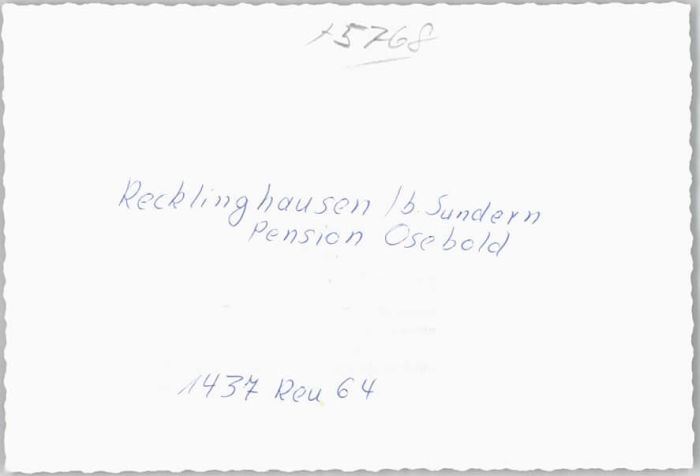 15768
Recklinghausen /b. Sundern
Pension Osebold
1437 Reu 64